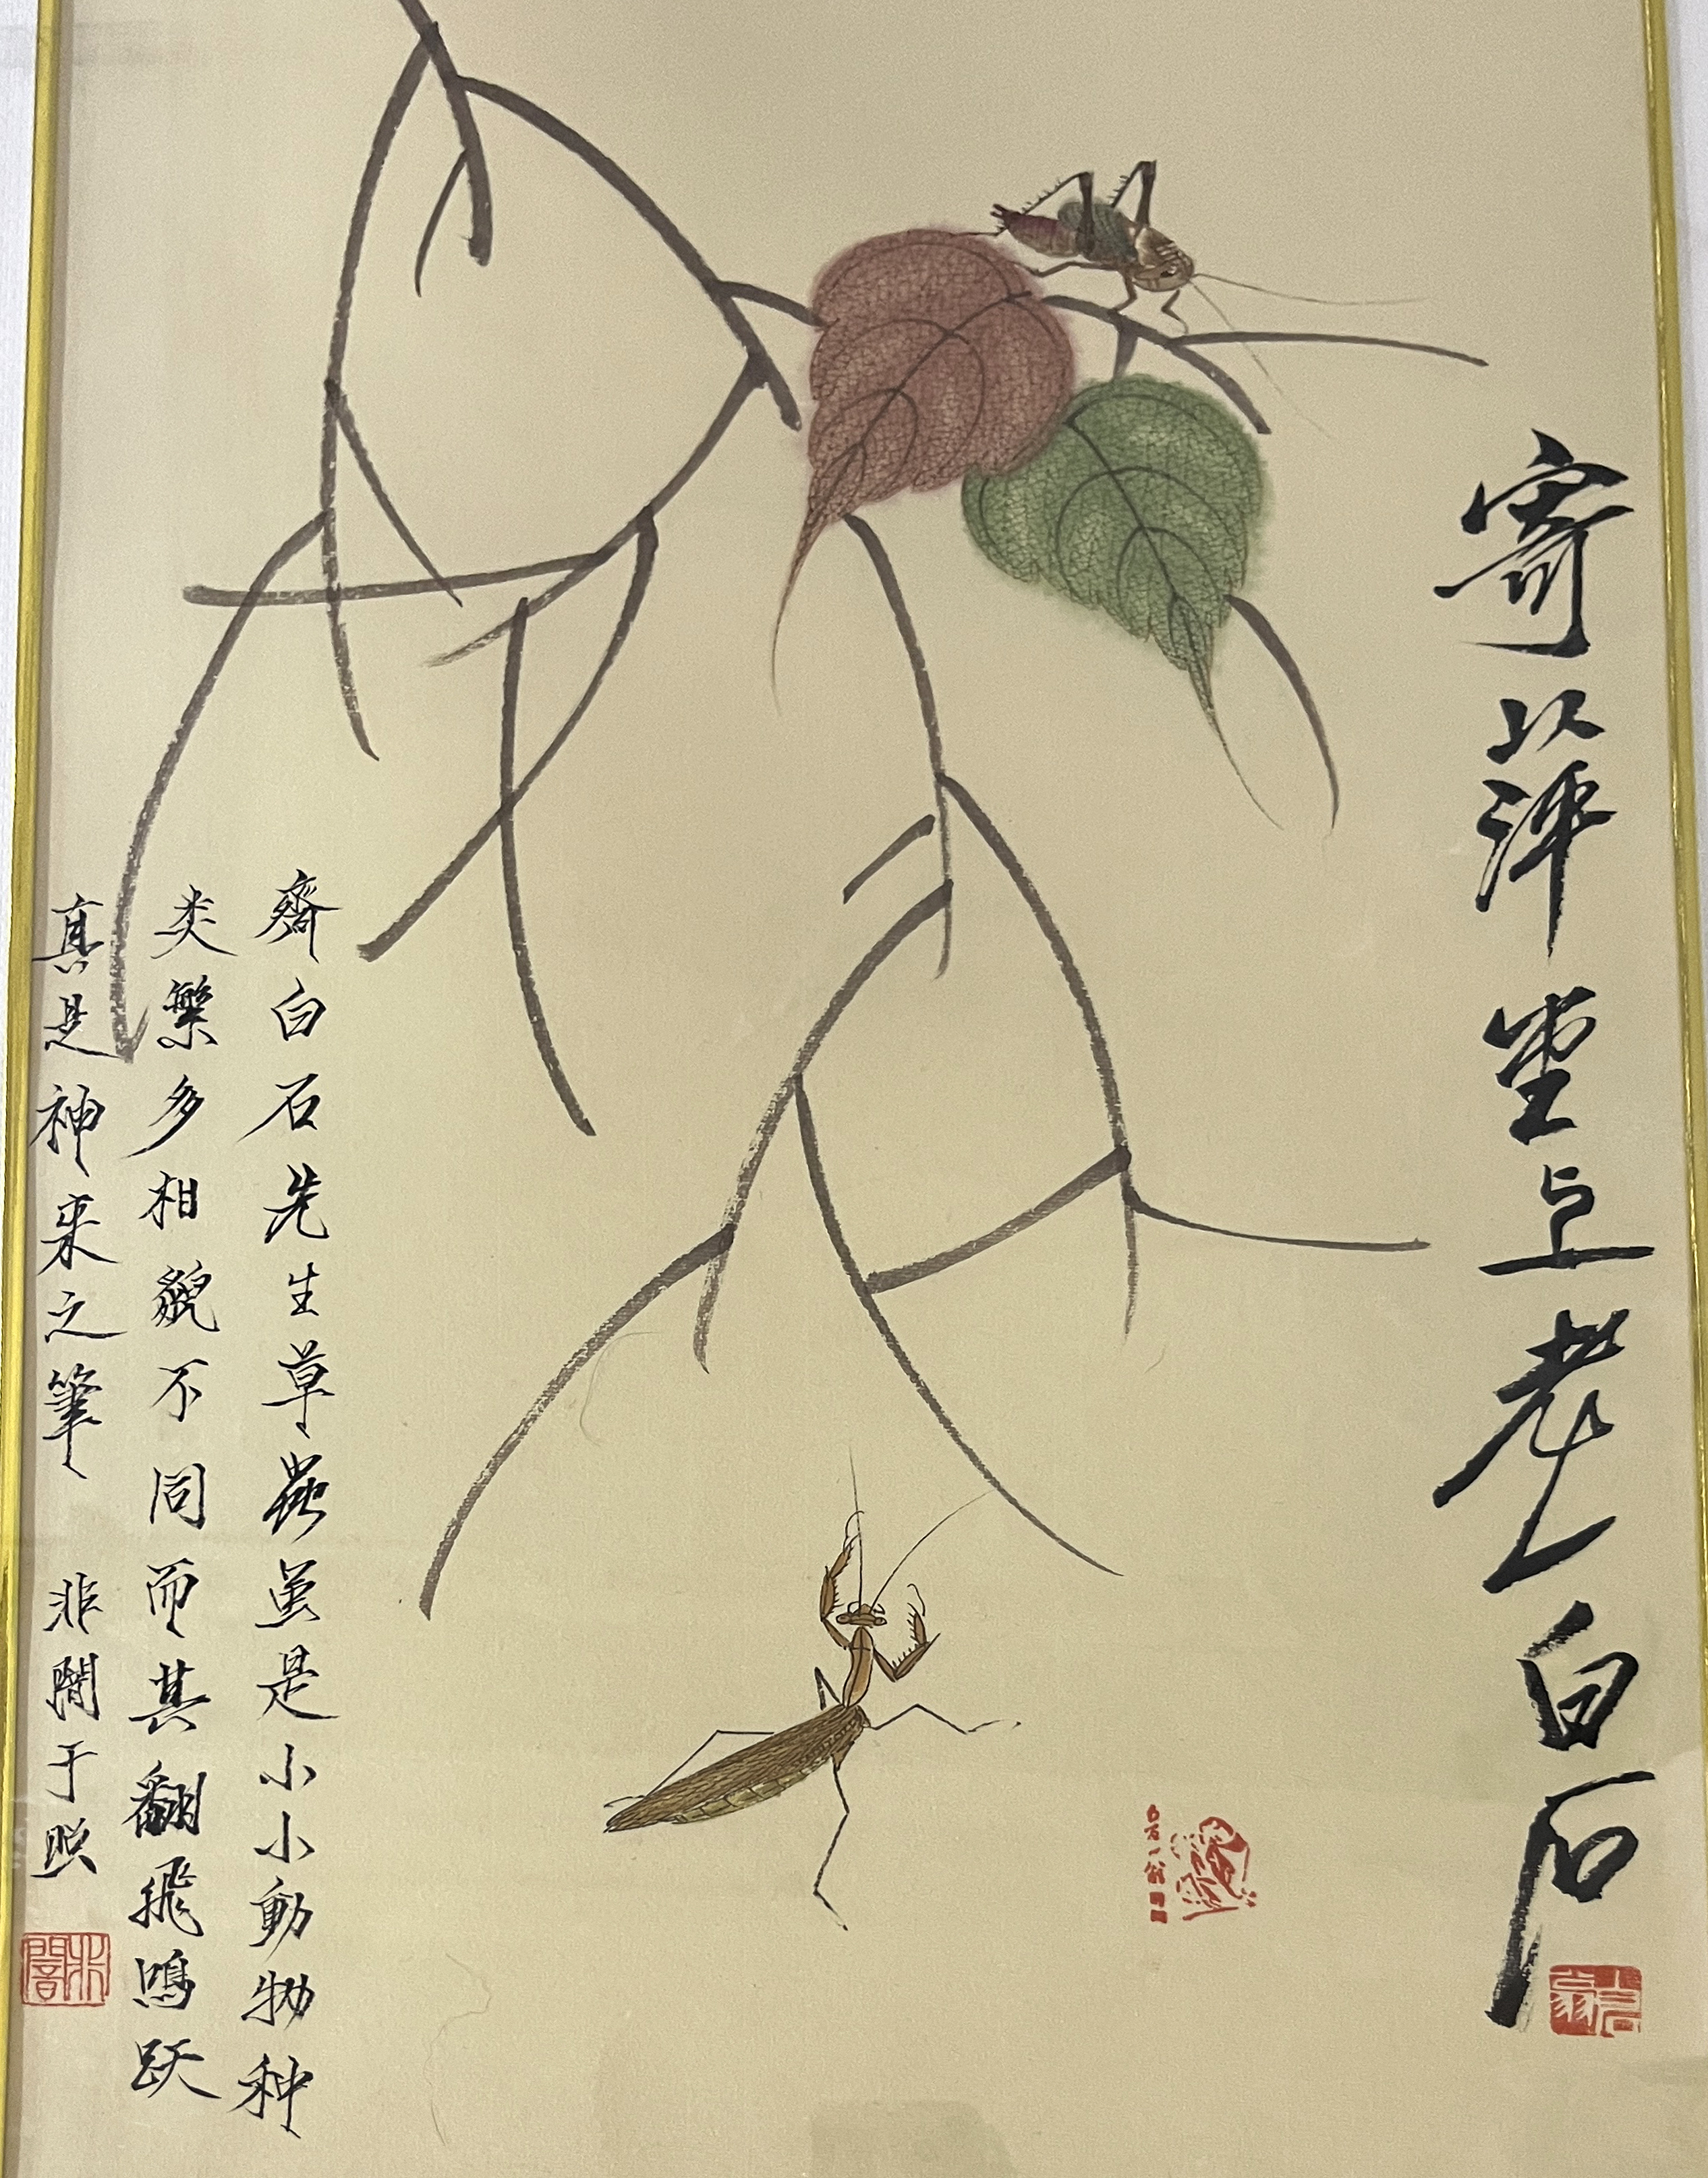 寄萍堂上老白石
齊白石先生草蟲虽是小小動物种
类繁多相貌不同而其翻飛鳴跃
真是神来之筆 非闇于照
白石翁
非闇